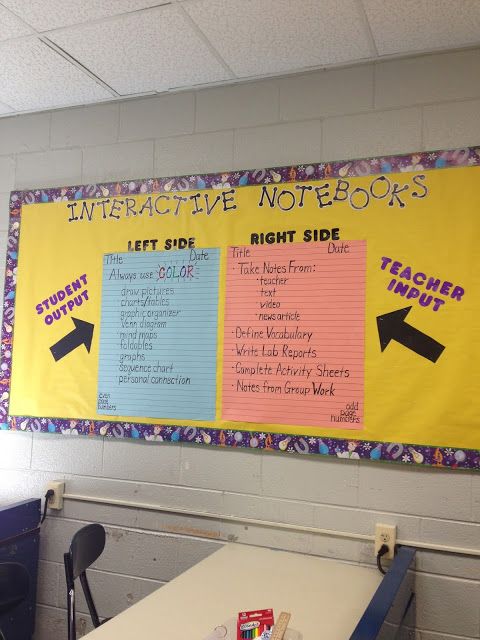 INTERACTIVE NOTEBOOKS
LEFT SIDE
Title Date
Always use COLOR
draw pictures
charts/tables
graphic organizer
venn diagram
mind maps
foldables
graphs
sequence chart
personal connection
even
page
numbers
STUDENT
OUTPUT
RIGHT SIDE
Title Date
· Take Notes From:
· teacher
· text
· video
· news article
· Define Vocabulary
· Write Lab Reports
· Complete Activity Sheets
· Notes from Group Work
odd
page
numbers
TEACHER
INPUT